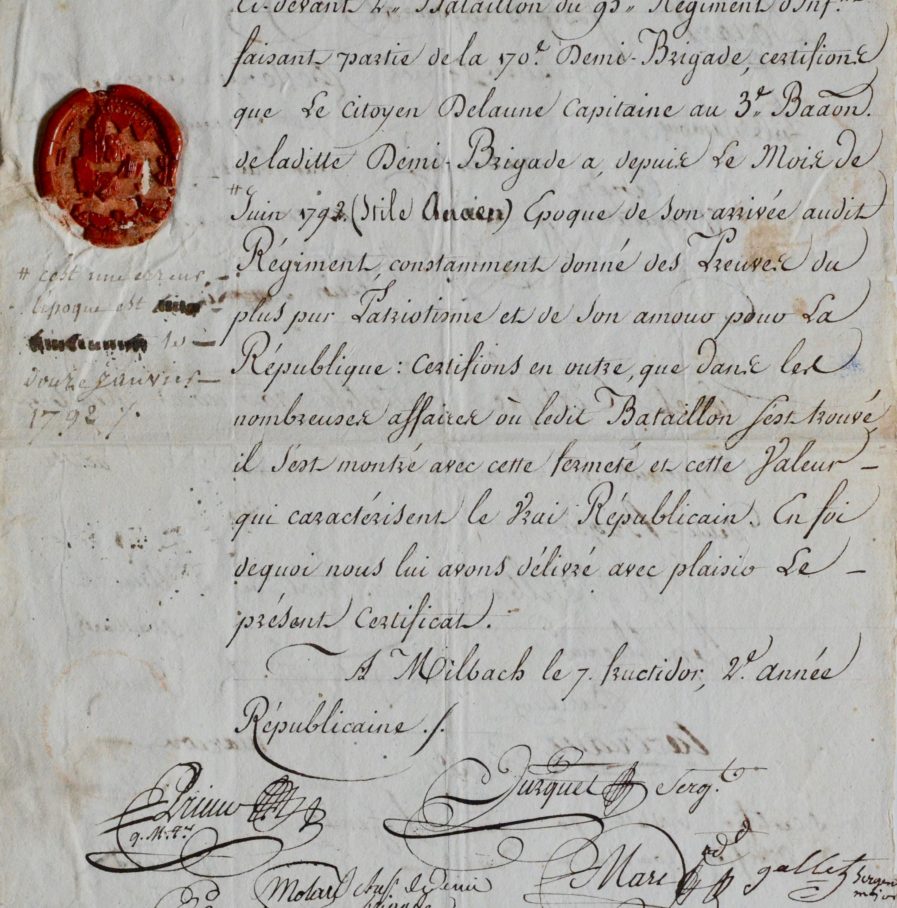 Ci-devant 2.e Bataillon du 95.e Régiment d'Inf.rie
faisant partie de la 170.e Demi-Brigade, certifions
que Le Citoyen Delaune Capitaine au 3.e Baaon.
de laditte Demi-Brigade a, depuis Le Mois de
# Juin 1792. (Stile Ancien) Epoque de Son arrivée audit
Régiment, constamment donné des Preuves du
plus pur Patriotisme et de Son amour pour La
République : Certifions en outre, que dans les
nombreuses affaires où ledit Bataillon s'est trouvé
il s'est montré avec cette fermeté et cette Valeur
qui caractérisent le Vrai Républicain. En foi
de quoi nous lui avons délivré avec plaisir Le
présent Certificat.
A Milbach le 7. fructidor, 2.e année
Républicaine ./.
# C'est une erreur,
l'époque est
le
douze Janvier
1792 /.
q. M.
Jurquet Serg.t
Molard chef de demi
Mare ad.
gallet Sergent
major